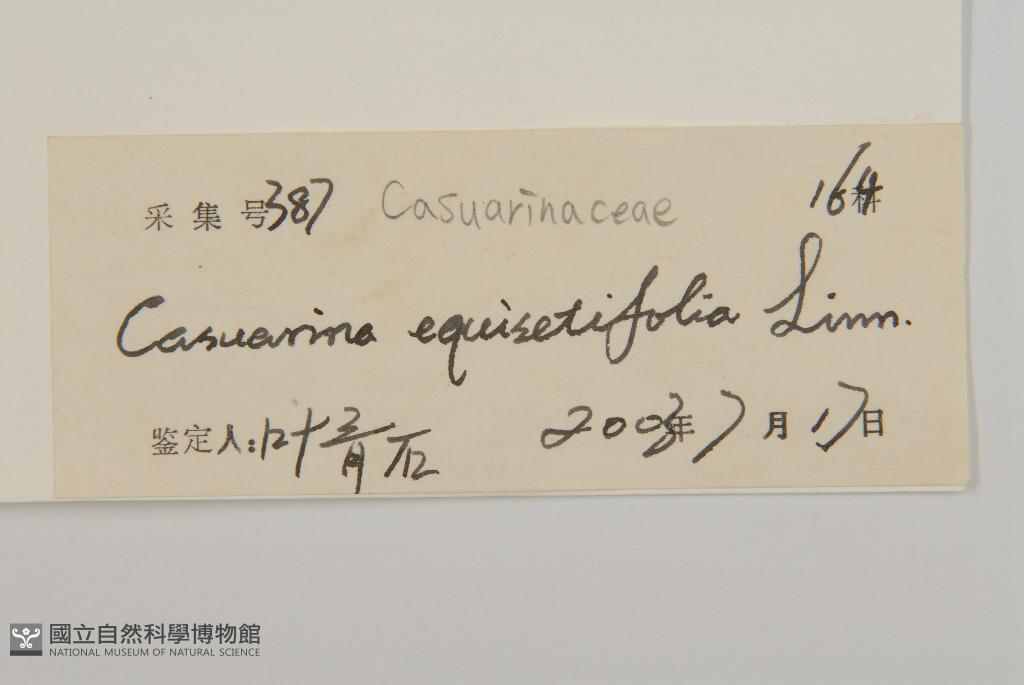 采集号 387 Casuarinaceae 164科
Casuarina equisetifolia Linn.
鉴定人:叶青石 2003年7月17日
國立自然科學博物館
NATIONAL MUSEUM OF NATURAL SCIENCE